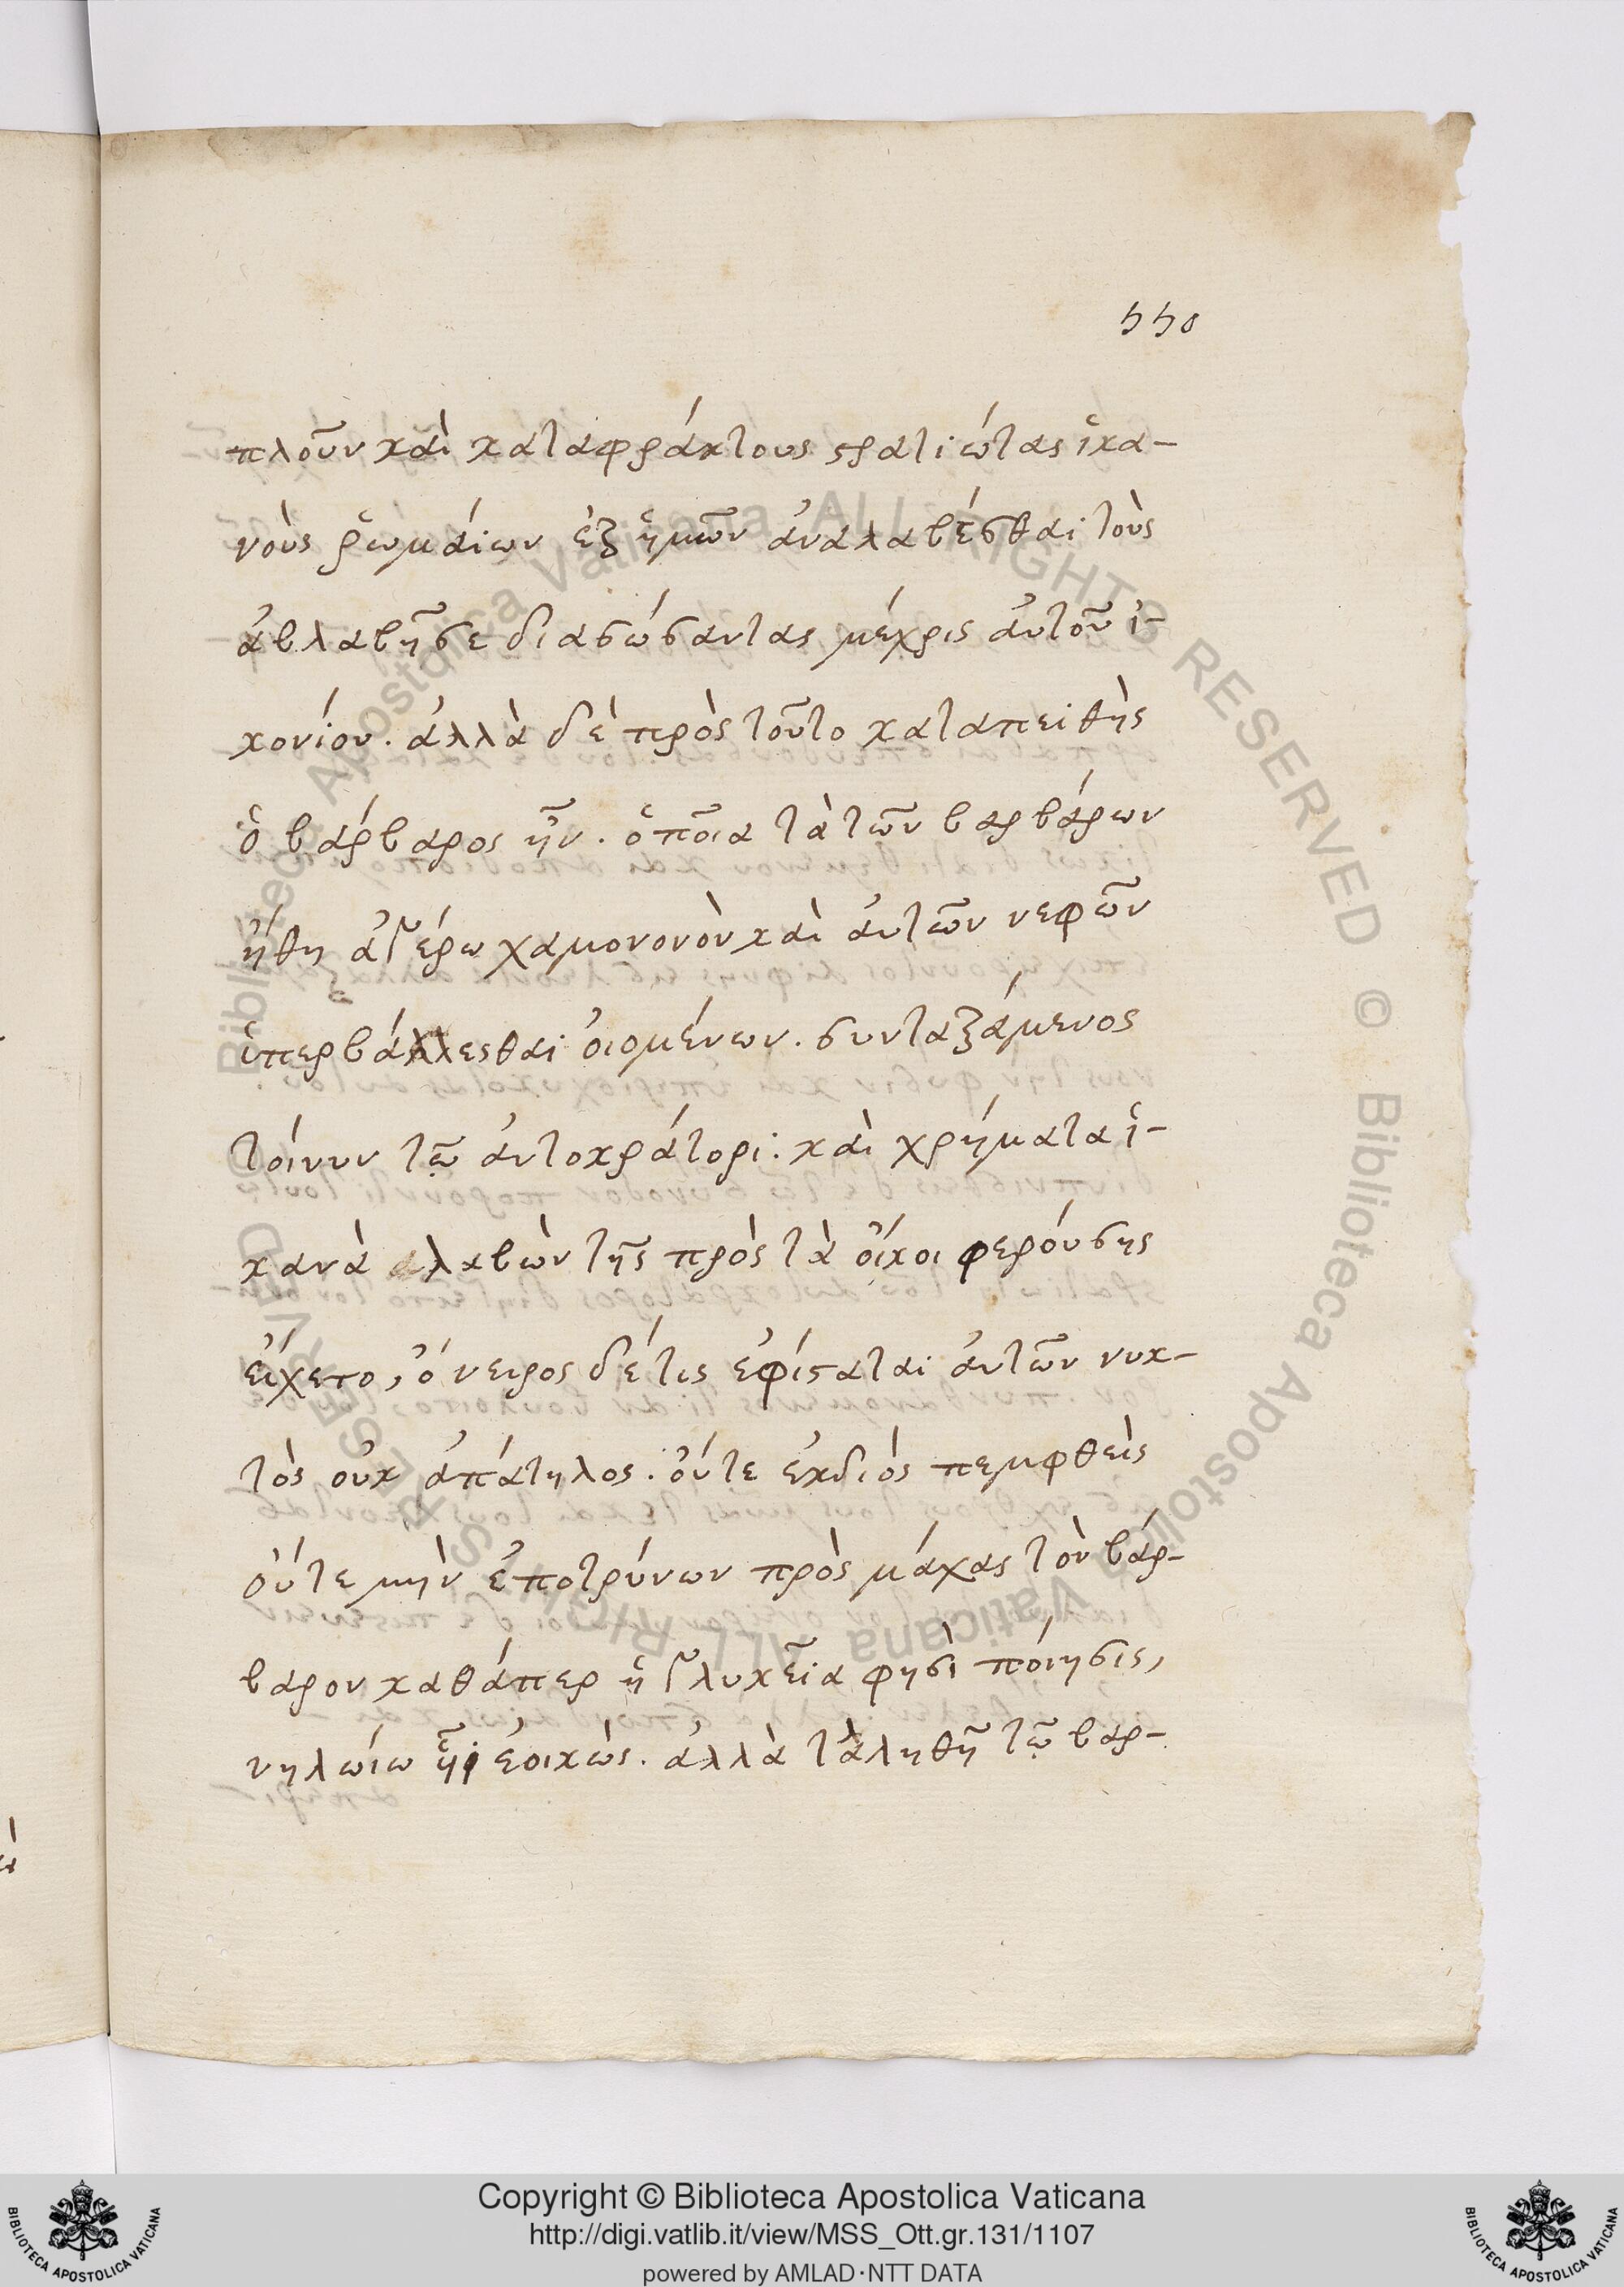 550
πλοῦν καὶ καταφράκτους στρατιώτας ἱκα-
νοὺς ῥωμάιων ἐξ ἡμῶν ἀναλαβέσθαι τοὺς
ἀβλαβῆ σε διασώσαντας μέχρις ἀυτοῦ ἰ-
κονίου. ἀλλὰ δὲ πρὸς τοῦτο καταπειθὴς
ὁ βάρβαρος ἦν. ὁποῖα τὰ τῶν βαρβάρων
ἤθη ἀγέρωχα μονονοὺ καὶ ἀυτῶν νεφῶν
ὑπερβάλλεσθαι ὀιομένων. συνταξάμενος
τοίνυν τῶ ἀυτοκράτορι. καὶ χρήματα ἱ-
κανὰ λαβὼν τῆς πρὸς τὰ ὄικοι φερόυσης
ἔιχετο, ὄνειρος δέ τις ἐφίσταται ἀυτῶν νυκ-
τὸς ὀυκ ἀπάτηλος. ὄυτε ἐκ διὸς πεμφθεὶς
ὄυτε μὴν ἐποτρύνων πρὸς μάχας τὸν βάρ-
βαρον καθάπερ ἡ γλυκεῖα φησὶ πόιησις,
νηλωίω ἧι ἐοικὼς. ἀλλὰ τἀληθῆ τῶ βαρ-
Copyright © Biblioteca Apostolica Vaticana
http://digi.vatlib.it/view/MSS_Ott.gr.131/1107
powered by AMLAD·NTT DATA
BIBLIOTECA APOSTOLICA VATICANA
BIBLIOTECA APOSTOLICA VATICANA
Biblioteca Apostolica Vaticana ALL RIGHTS RESERVED © Biblioteca Apostolica Vaticana ALL RIGHTS RESERVED ©